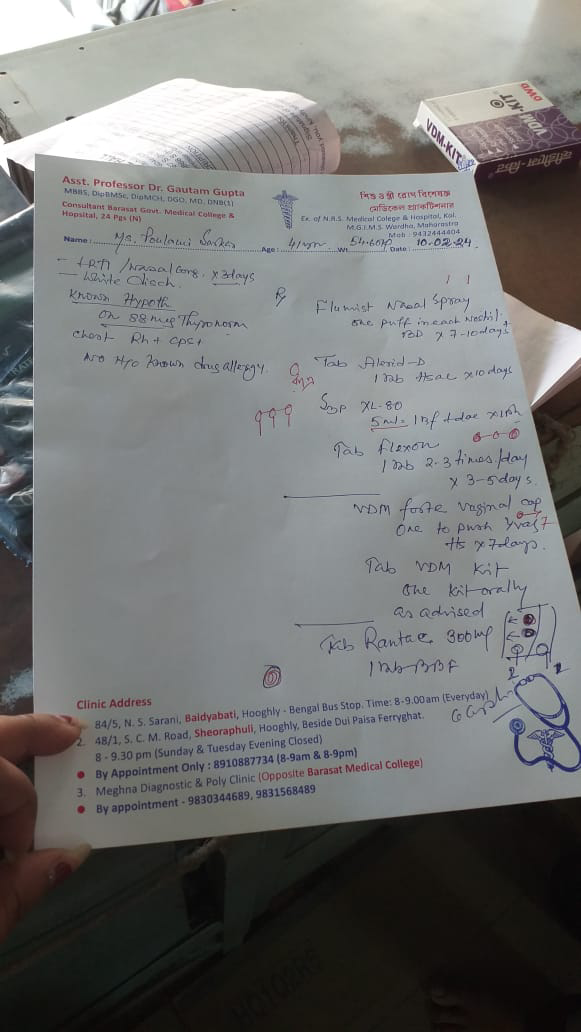 Asst. Professor Dr. Gautam Gupta
MBBS, DipBMSc, DipMCH, DGO, MD, DNB(1)
Consultant Barasat Govt. Medical College &
Hopsital, 24 Pgs (N)
শিশু ও স্ত্রী রোগ বিশেষজ্ঞ
মেডিকেল প্র্যাকটিশনার
Ex. of N.R.S. Medical College & Hospital, Kol.
M.G.I.M.S. Wardha, Maharastra
Mob : 9432444404
Name : Ms. Poulami Sarkar Age : 41yr Wt 54.60 Date : 10.02.24.
/Nasal Cong. x 3days
White Disch.
Known Hypoth
on 88mcg Thyronorm
chest Rh+ CPS+
No H/o known drug allergy.
Rx
Flumist Nasal Spray
one puff in each nostril
BD x 7-10days
Tab Alerid-D
1 tab x10days
Syp XL-80
5ml
Tab Flexon
1 tab 2-3 times/day
x 3-5days.
VDM forte vaginal cap
One to push
Hs x 7days.
Tab VDM Kit
One kit orally
as advised
Tab Rantac 300mg
1 tab BBF
Clinic Address
84/5, N. S. Sarani, Baidyabati, Hooghly - Bengal Bus Stop. Time: 8-9.00am (Everyday)
2. 48/1, S. C. M. Road, Sheoraphuli, Hooghly, Beside Dui Paisa Ferryghat.
8 - 9.30 pm (Sunday & Tuesday Evening Closed)
By Appointment Only : 8910887734 (8-9am & 8-9pm)
3. Meghna Diagnostic & Poly Clinic (Opposite Barasat Medical College)
By appointment - 9830344689, 9831568489
VDM-KIT
VDM-KIT
DWD